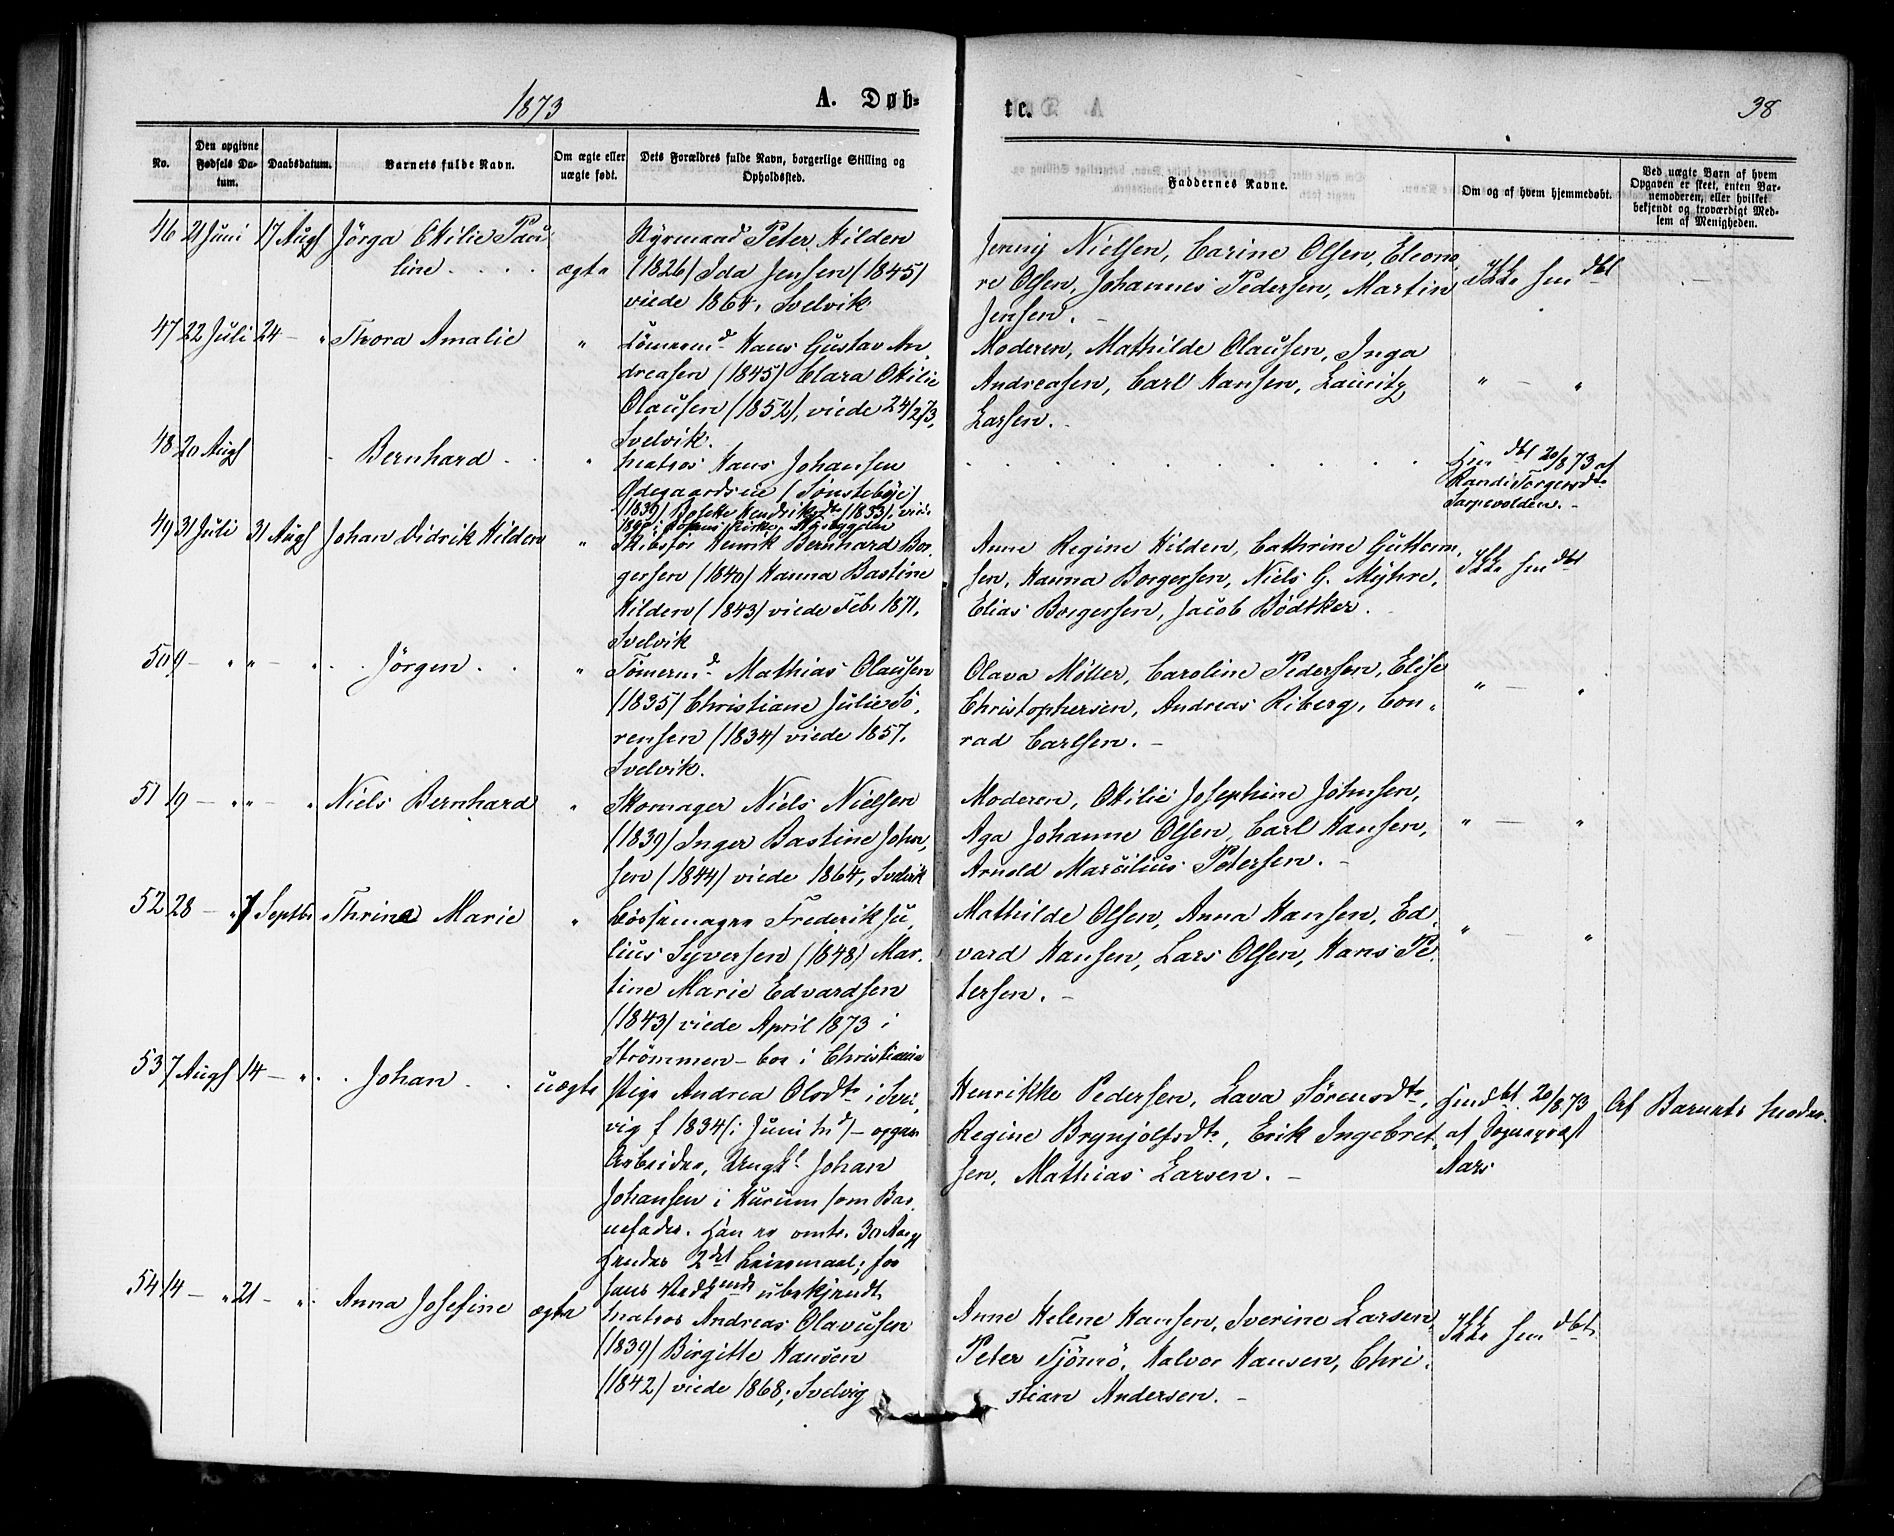 1873
A. Døb=
tc.
38
No.
Den opgivne Fødsels Da-tum.
Daabsdatum.
Barnets fulde Navn.
Om ægte eller uægte født.
Dets Forældres fulde Navn, borgerlige Stilling og Opholdssted.
Faddernes Navne.
Om og af hvem hjemmedøbt.
Ved uægte Barn af hvem Opgaven er skeet, enten Bar-nemoderen, eller hvilket bekjendt og troværdigt Med-lem af Menigheden.
46 21 Juni 17 Augs Jörga Otilie Pau
line . . . . ægte
Styrmand Peter Hilden
(1826) Ida Jensen (1845)
viede 1864, Svelvik
Jenny Nielsen, Carine Olsen, Eleono
re Olsen, Johannes Pedersen, Martin
Jensen. -
Ikke hjmdbt
47 22 Juli 24 - " Thora Amalie "
Tömermd Hans Gustav An,
dreasen (1845) Clara Otilie
Olausen (1852), viede 24/2 73,
Svelvik.
Moderen, Mathilde Olausen, Inga
Andreasen, Carl Hansen, Lauritz
Larsen.
" - "
48 20 Augs Bernhard "
Matros Hans Johansen
Ødegaardseie (Tönsteböie)
(1839) Bolette Hendriksdtr (1833), vie
Hjmdbt 20/8 73 af
Randi Torgersdtr
Sarpevolden. -
49 31 Juli 31 Augs Johan Didrik Hilden "
Skibsför Henrik Bernhard Bor,
gersen (1840) Hanna Bastine
Hilden (1843) viede Feb. 1871,
Svelvik
Anne Regine Hilden, Cathrine Guttorm,
sen, Hanna Borgersen, Niels G. Myhre,
Elias Borgersen, Jacob Bödtker.
Ikke hjmdbt
50 9 - " " - " Jörgen . . "
Tömermd Mathias Olausen
(1835) Christiane Julie Sö,
rensen (1834) viede 1857,
Svelvik.
Olava Möller, Caroline Pedersen, Elise
Christophersen, Andreas Riberg, Con,
rad Carlsen. -
" - "
51 19 - " " - " Niels Bernhard "
Skomager Niels Nielsen
(1839) Inger Bastine Johan,
sen (1844) viede 1864, Svelvik
Moderen, Otilie Josephine Johnsen,
Aga Johanne Olsen, Carl Hansen,
Arnold Marcilius Petersen. -
" - "
52 28 - " 7 Septbr Thrine Marie "
Bössemager Frederik Ju,
lius Syversen (1848) Mar,
tine Marie Edvardsen
(1843) viede April 1873 i
Strömmen - bor i Christiania
Mathilde Olsen, Anna Hansen, Ed,
vard Hansen, Lars Olsen, Hans Pe
tersen. -
" - "
53 7 Augs 14 - " Johan uægte
Pige Andrea Olsdtr i Svel,
vig f 1834 (i Juni Md) - opgav
Arbeider, Ungk. Johan
Johansen i Hurum som Bar,
nefader. Han er omtr. 30 Aar.
Hendes 2det Leiermaal; for
hans Vedkmde ubekjendt.
Henrikke Pedersen, Lava Sörensdtr,
Regine Brynjolfsdtr, Erik Ingebret,
sen, Mathias Larsen. -
Hjmdbt 20/8 73
af Sognepræst
Aars
Af Barnets Moder.
54 14 - " 21 - " Anna Josefine ægte
Matros Andreas Olavusen
(1839) Birgitte Hansen
(1842) viede 1868; Svelvig
Anne Helene Hansen, Iverine Larsen,
Peter Tjömö, Halvor Hansen, Chri,
stian Andersen. -
Ikke hjmdbt.